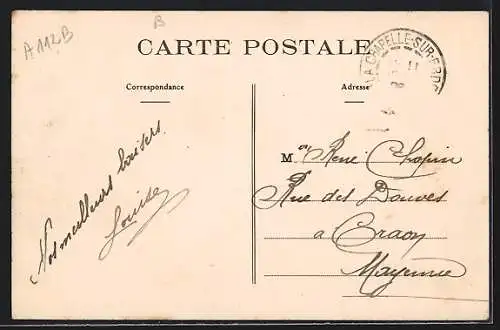 A 112 B
B
CARTE POSTALE
LA CHAPELLE-SUR-ERDRE
Correspondance
Adresse
Mr René Chopin
Rue des Douves
a Craon
Mayenne
Nos meilleurs baisers
Louise